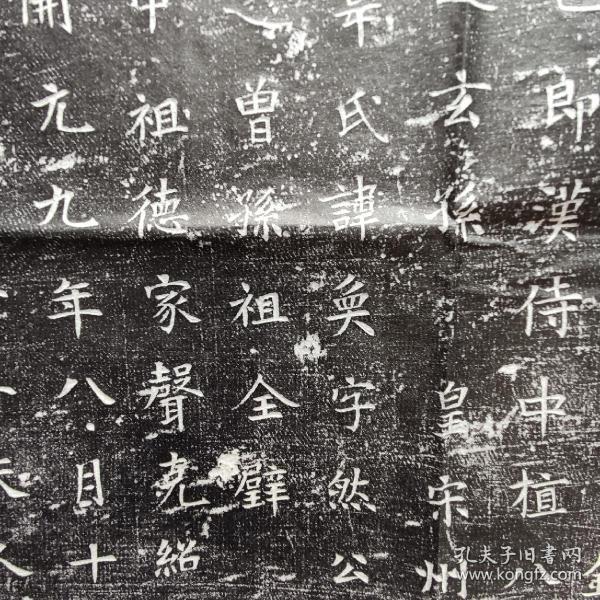 郎漢侍中植
玄孫 皇宋州
氏諱奐字然公
曾孫祖全璧
祖德家聲堯紹
開元九年八月十
孔夫子旧书网
www.kongfz.com